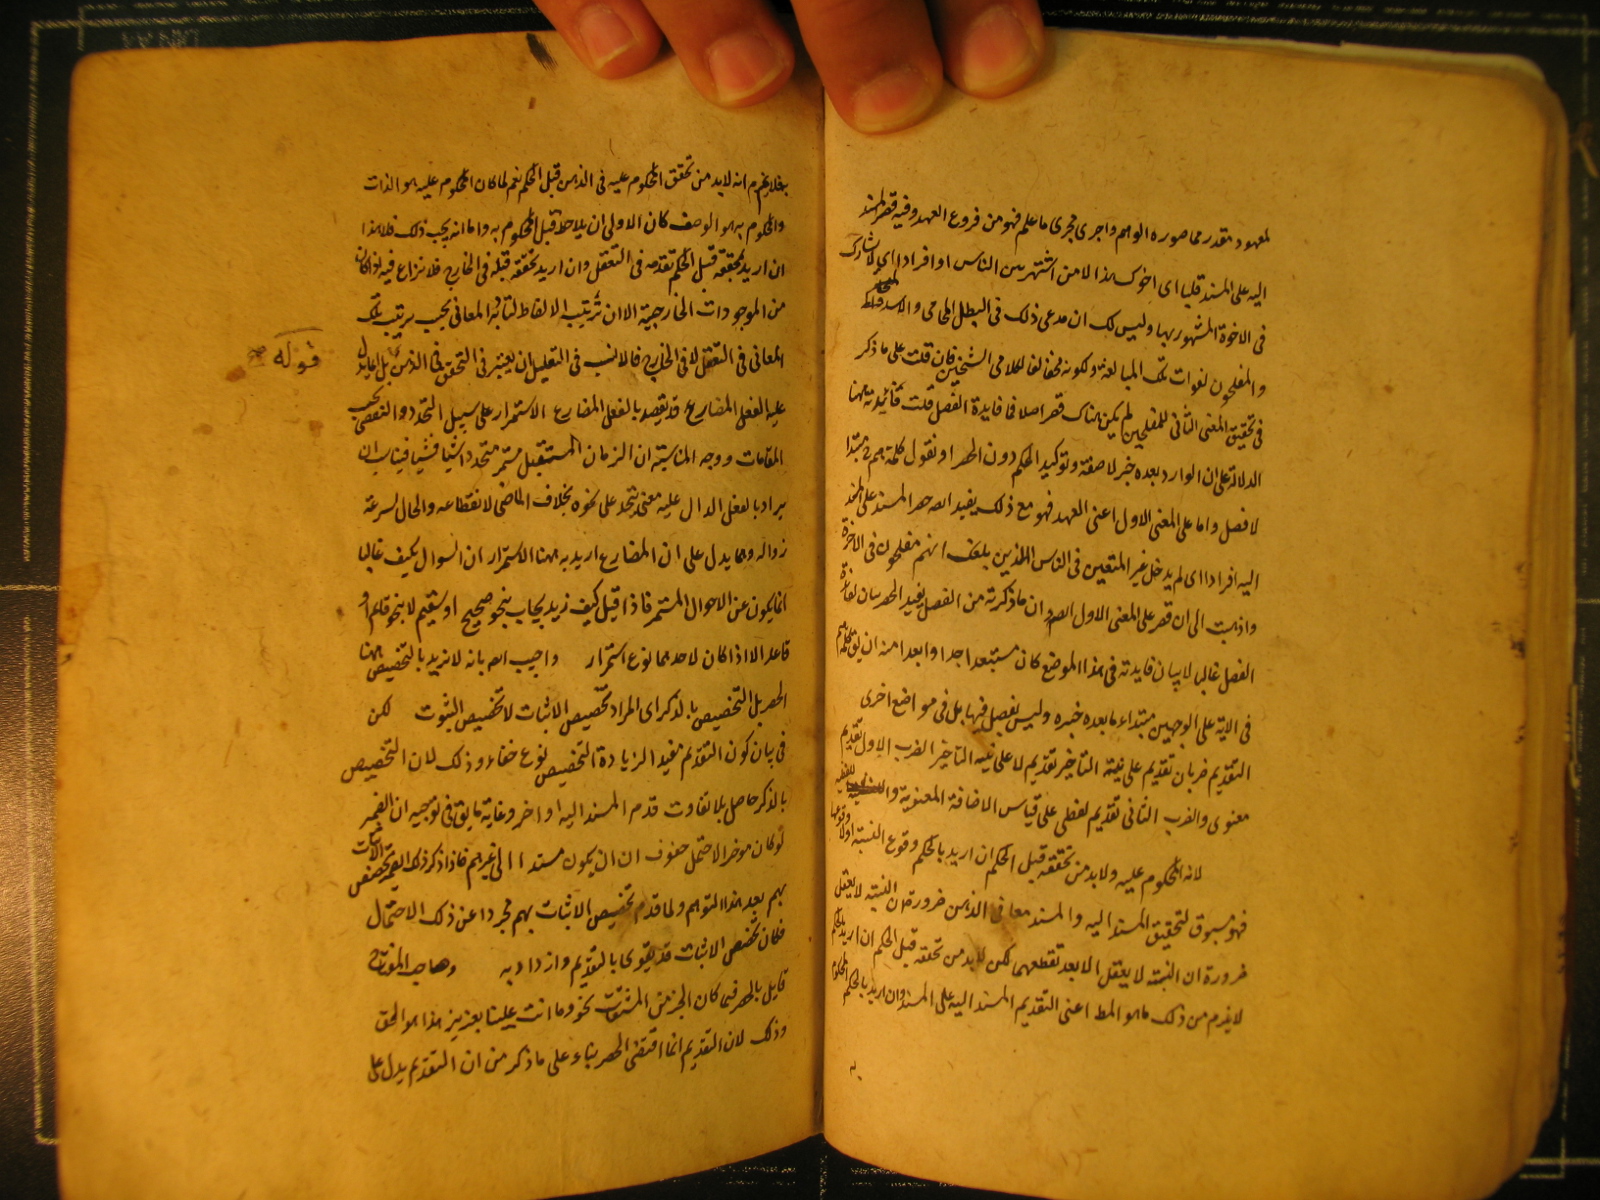 لمعهود مقدر مما صوره الوهم واجرى مجرى ما علم فهو من فروع العهد وفيه قصر المسند
اليه على المسند قلبا اى اخوك هذا لا من اشتهر بين الناس او افرادا اى لا يشارك
فى الاخوة المشهور بها وليس لك ان مدعى ذلك فى البطل المحامى والاسد
والمفلحون لفوات تلك المبالغة ولكونه مخالفا لكلامى الشيخين فان قلت على ما ذكر
فى تحقيق المعنى الثانى للمفلحين لم يكن هناك قصر اصلا فما فايدة الفصل قلت فائدته ههنا
الدلالة على ان الوارد بعده خبر لا صفة وتوكيد الحكم دون الحصر او نقول كلمة هم مبتدا
لا فصل واما على المعنى الاول اعنى العهد فهو مع ذلك يفيد انحصار المسند على المسند
اليه افرادا اى لم يدخل غير المتعين فى الناس الذين بلغك انهم مفلحون فى الاخرة
واذهبت الى ان قصر على المعنى الاول ان ما ذكرته من الفصل يفيد الحصر بيان لفائدة
الفصل غالبا لا بيان فايدته فى هذا الموضع كان مستبعدا جدا وابعد منه ان يق
فى الاية على الوجهين مبتداء ما بعده خبره وليس بفصل فيها بل فى مواضع اخرى
التقديم ضربان تقديم على نية التاخير تقديم لا على نية التاخير الضرب الاول تقديم
معنوى والضرب الثانى تقديم لفظى على قياس الاضافة المعنوية واللفظية
لانه المحكوم عليه ولا بد من تحققه قبل الحكم ان اريد بالحكم وقوع النسبة اولا وقوعها
فهو مسبوق لتحقيق المسند اليه والمسند معا فى الذهن ضرورة ان النسبة لا يعقل
ضرورة ان النسبة لا يعقل الا بعد تعقلهما لكن لا بد من تحققه قبل الحكم ان اريد بالحكم
لا يلزم من ذلك ما هو المط اعنى التقديم المسند اليه على المسند وان اريد بالحكم المحكوم
به
انه لا بد من تحقق المحكوم عليه فى الذهن قبل الحكم نعم لما كان المحكوم عليه هو الذات
والمحكوم به هو الوصف كان الاولى ان يلاحظ قبل المحكوم به واما انه يجب ذلك فلا هذا
ان اريد بتحققه قبل الحكم تقدمه فى التعقل وان اريد تحققه قبله فى الخارج فلا نزاع فيه اذا كان
من الموجودات الخارجية الا ان ترتيب الالفاظ لتادية المعانى بحسب ترتيب تلك
المعانى فى التعقل لا فى الخارج فالانسب فى التعليل ان يعتبر فى التحقق فى الذهن
قوله
عليه الفعل المضارع قد يقصد بالفعل المضارع الاستمرار على سبيل التجدد والتقضى بحسب
المقامات ووجه المناسبة ان الزمان المستقبل مستمر متجدد شيئا فشيئا فيناسب ان
يراد بالفعل الدال عليه معنى يتجدد على نحوه بخلاف الماضى لانقطاعه والحال لسرعة
زواله ومما يدل على ان المضارع اريد به ههنا الاستمرار ان السوال بكيف غالبا
انما يكون عن الاحوال المستمر فاذا قيل كيف زيد يجاب بنحو صحيح او سقيم لا بنحو قائم او
قاعد الا اذا كان لاحدهما نوع استمرار واجيب بانه لا نريد بالتخصيص ههنا
الحصر بل التخصيص بالذكر اى المراد تخصيص الاثبات لا تخصيص الثبوت لكن
فى بيان كون التقديم مفيد الزيادة التخصيص نوع خفاء وذلك لان التخصيص
بالذكر حاصل بلا تفاوت قدم المسند اليه او اخر وغاية ما يق فى توجيهه ان الضمير
لو كان موخرا لاحتمل خفوف ان يكون مسندا الى غيرهم فاذا ذكر ذلك الضمير تخصص الاثبات
بهم بعد هذا التوهم ولما قدم تخصيص الاثبات بهم مجردا عن ذلك الاحتمال
فكان تخصيص الاثبات قد تقوى بالتقديم وازداد به وصاحب المفتاح
قايل بالحصر فيما كان الخبر من المشتقات نحو وما انت علينا بعزيز هذا هو الحق
وذلك لان التقديم انما اقتضى الحصر بناء على ما ذكر من ان التقديم يدل على